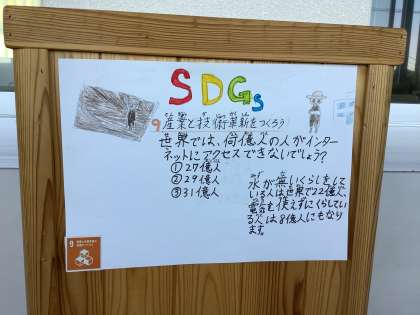 SDGs
9 産業と技術革新をつくろう
世界では、何億人の人がインター
ネットにアクセスできないでしょう?
①27億人
②29億人
③31億人
水が無いくらしをして
いる人は世界で22億人、
電気を使えずにくらしてい
る人は8億人にもなり
ます。
9